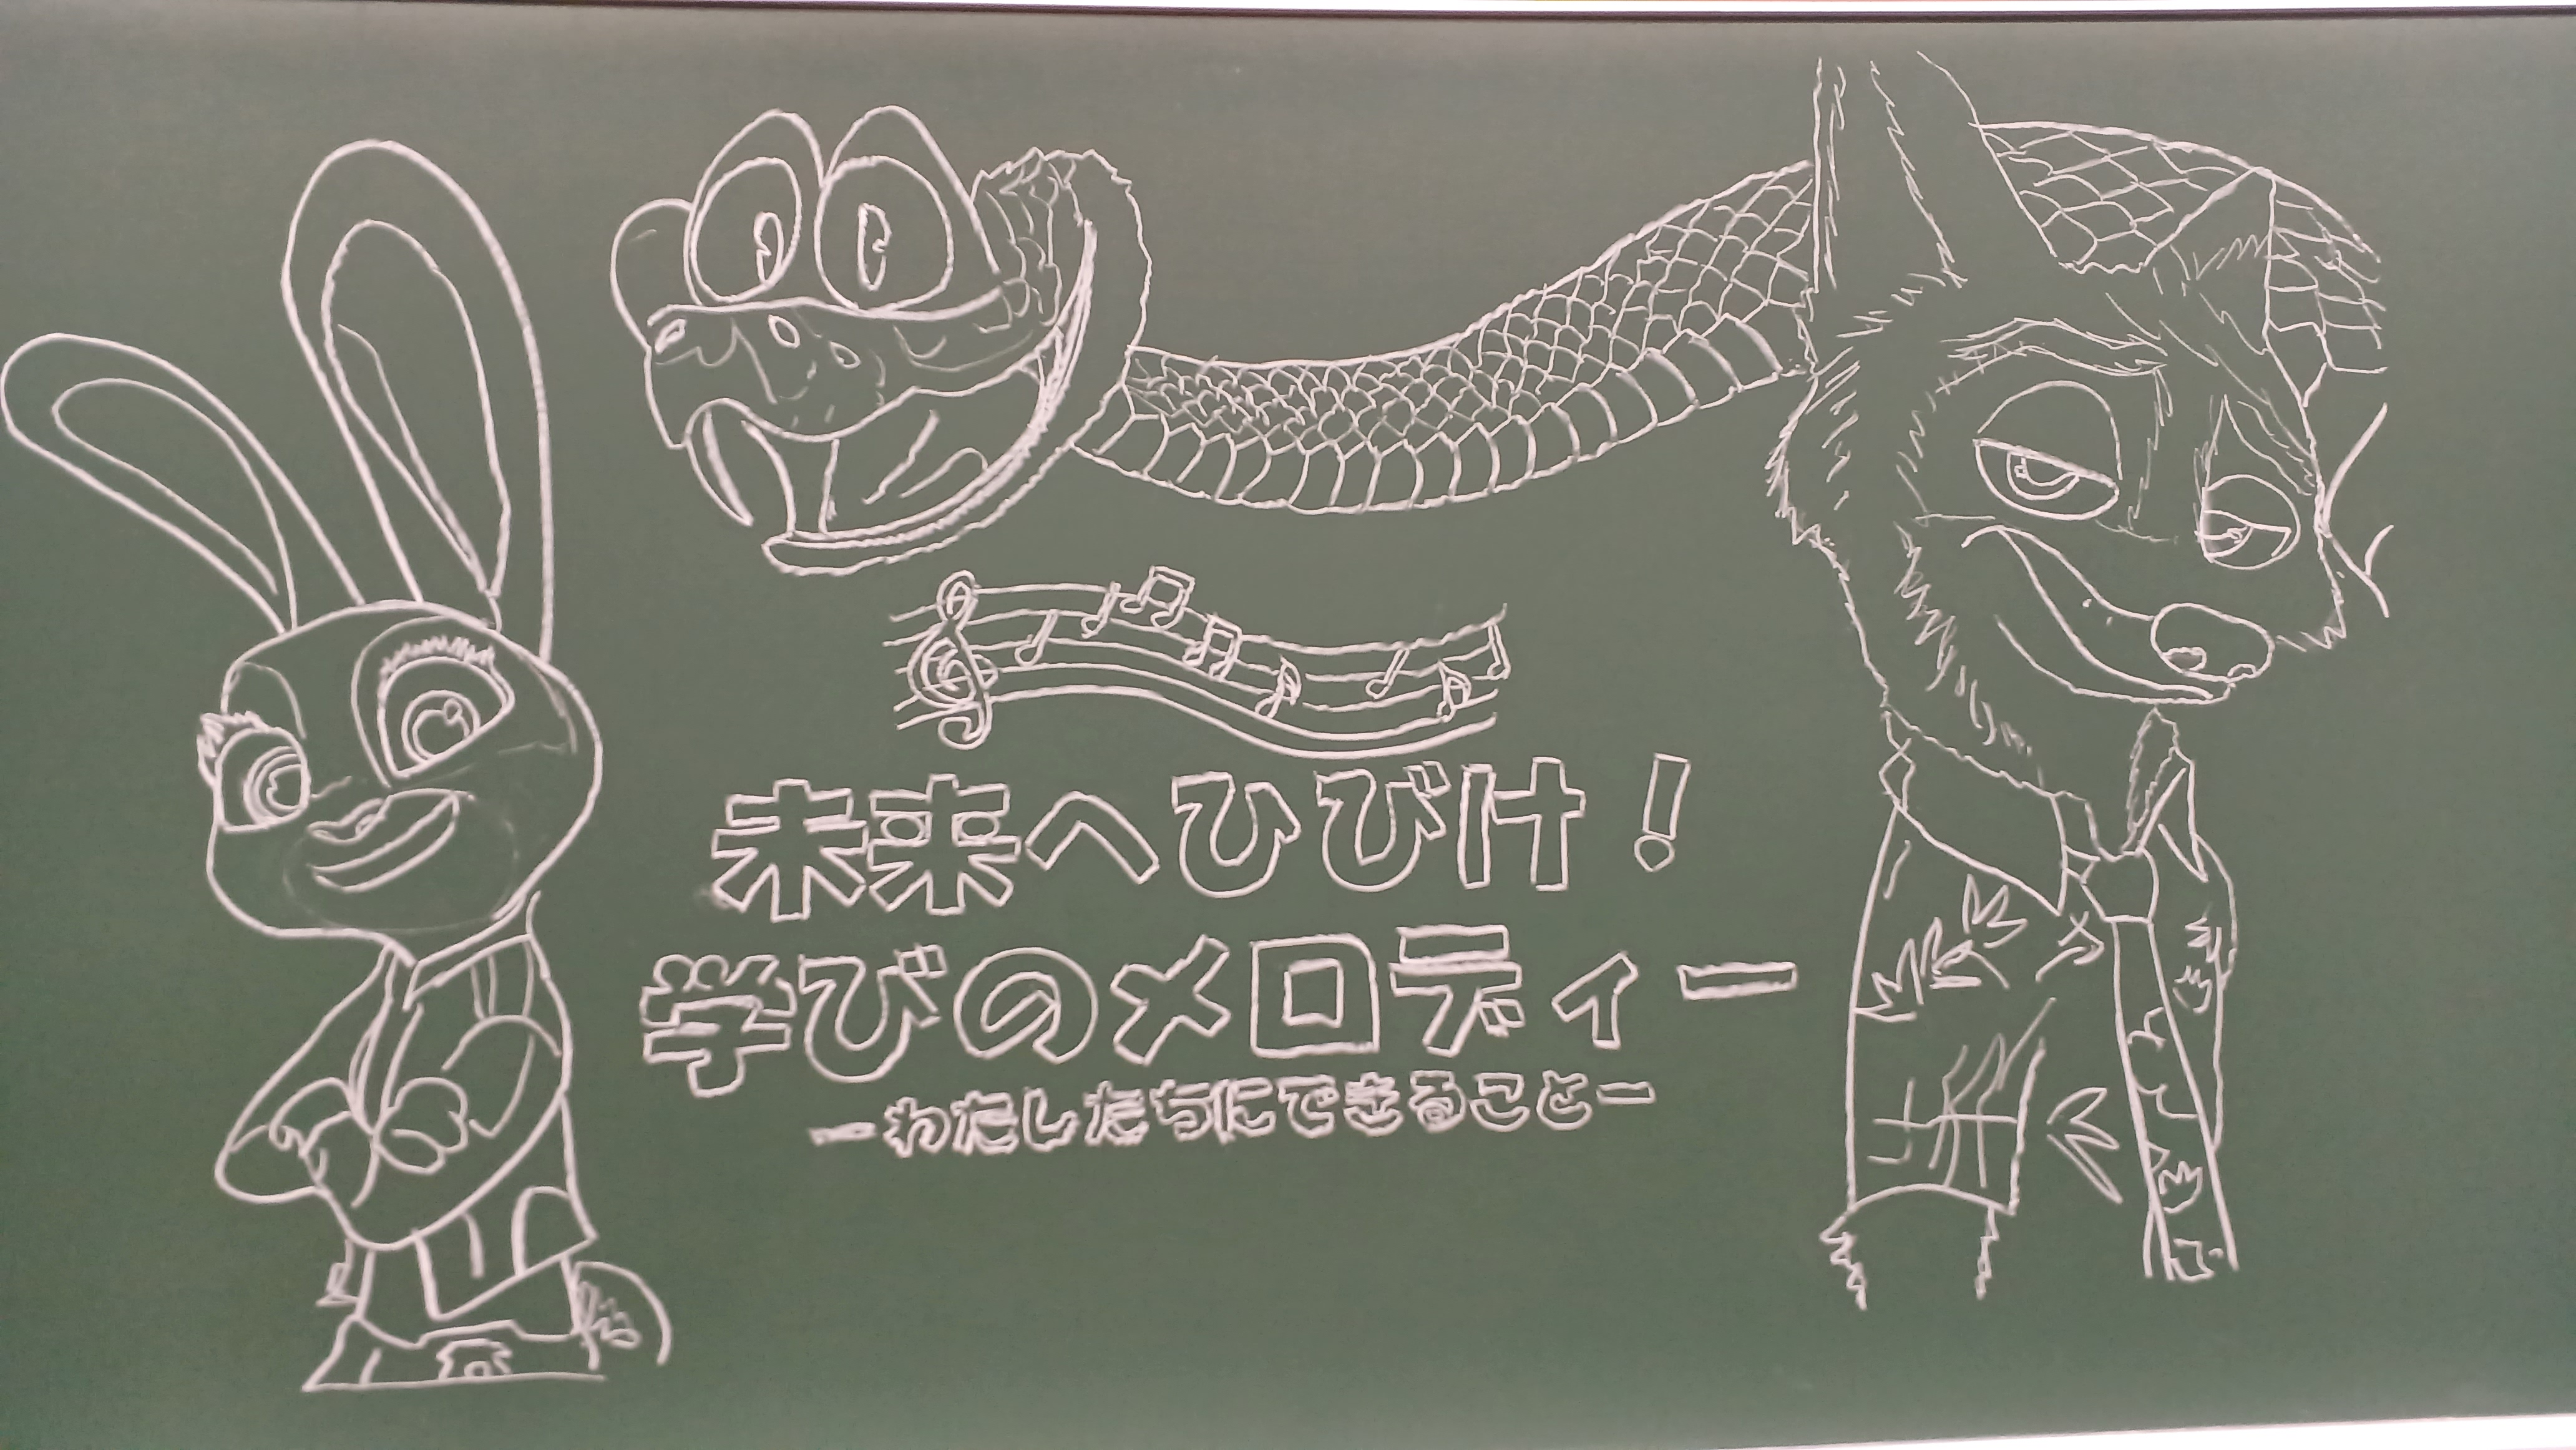 未来へひびけ！
学びのメロディー
ーわたしたちにできることー